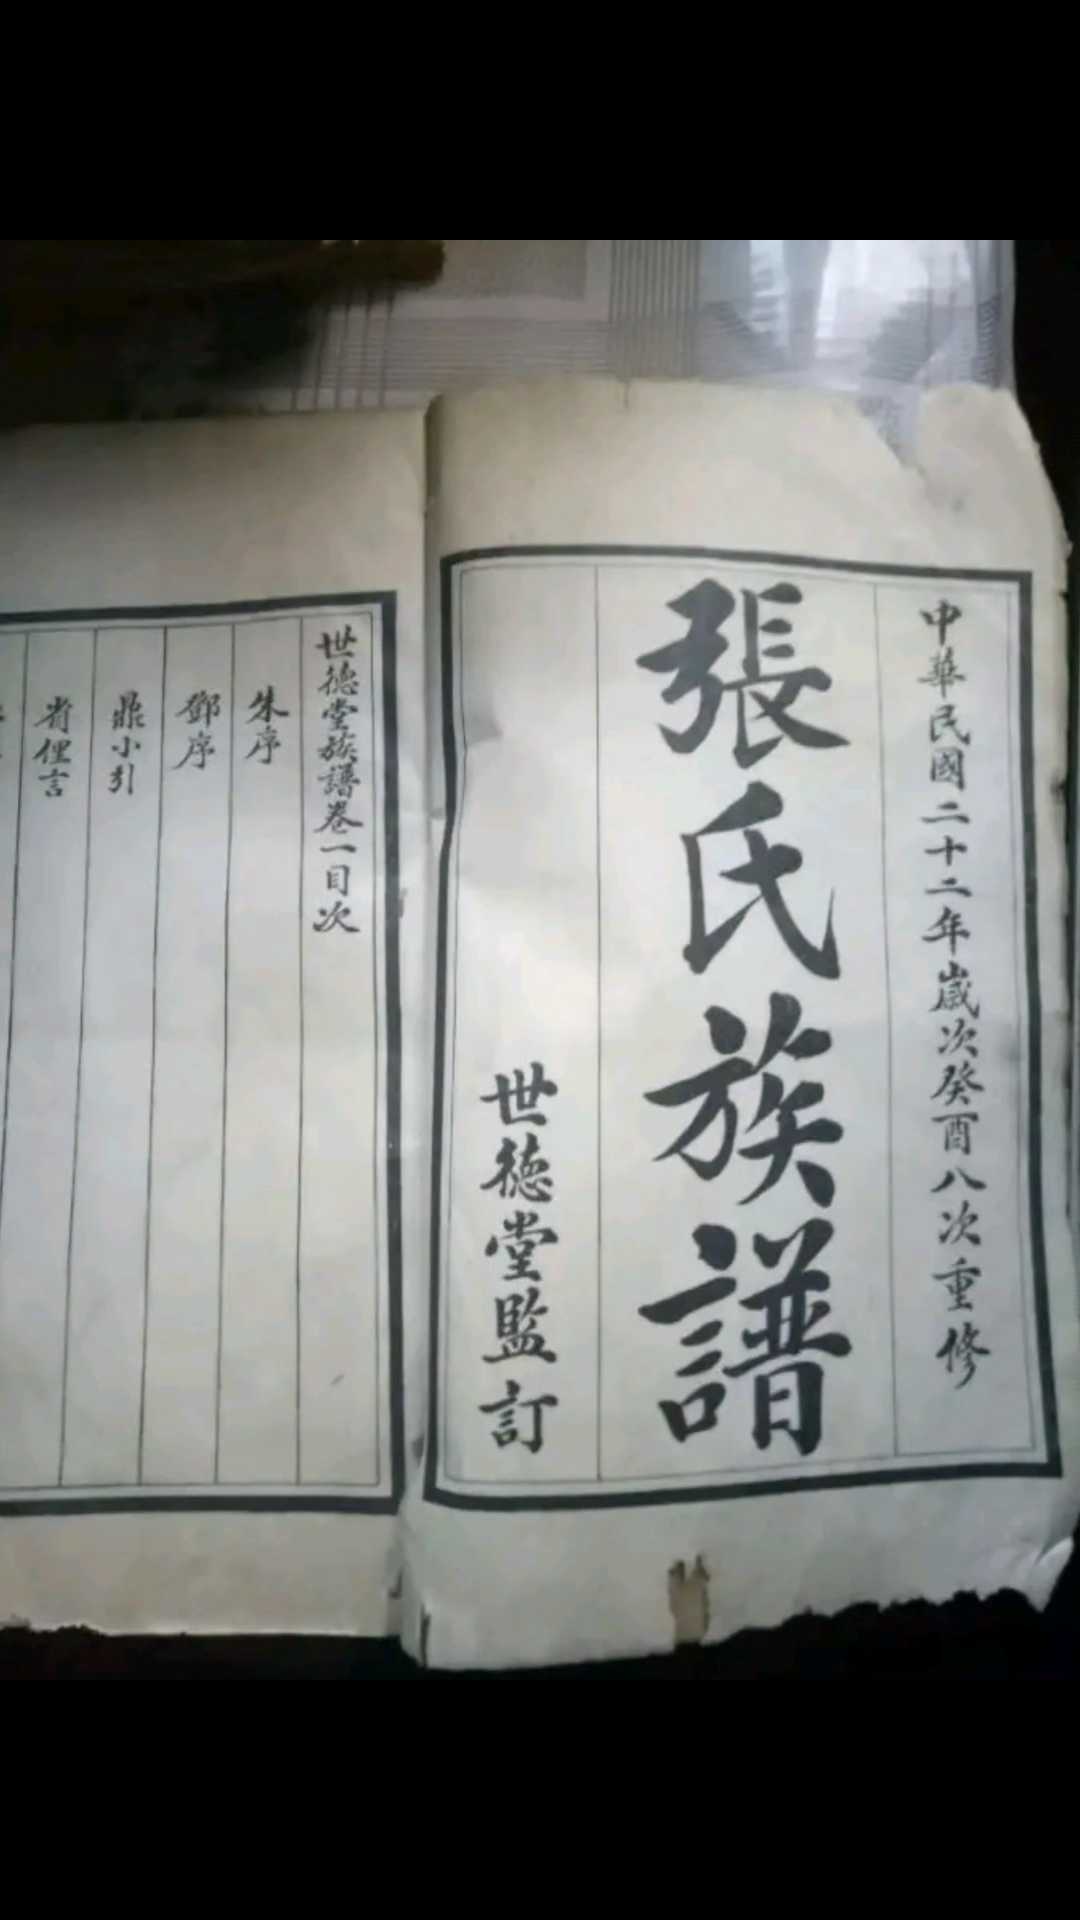 中華民國二十二年歲次癸酉八次重修
張氏族譜
世德堂監訂
世德堂族譜卷一目次
朱序
鄧序
鼎小引
省俚言